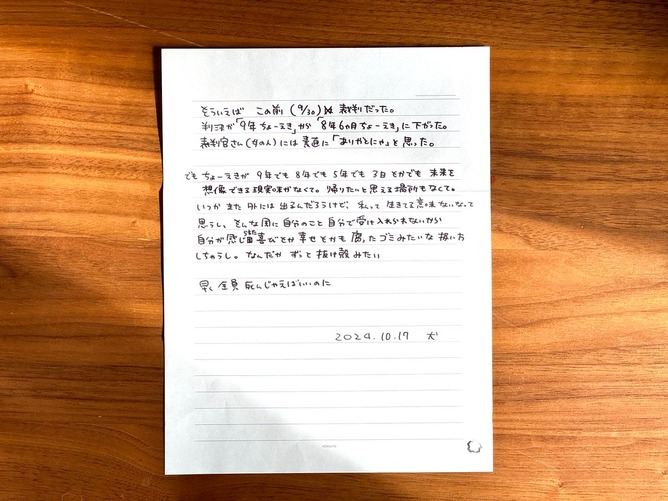 そういえば この前 (9/30) 裁判だった。
判決が「9年ちょーえき」から「8年6ヵ月ちょーえき」に下がった。
裁判官さん(女の人)には素直に「ありがとにゃ」と思った。
でも ちょーえきが 9年でも 8年でも 5年でも 3日とかでも 未来を
想像できる現実味がなくて。帰りたいと思える場所もなくて。
いつか また 外には 出るんだろうけど、私って 生きてる意味ないなって
思うし、そんな風に自分のこと自分で受け入れられないから
自分が感じた喜びとか幸せとかも 腐ったゴミみたいな 扱い方
しちゃうし。なんだか ずっと 抜け殻みたい
早く 全員 死んじゃえばいいのに
2024.10.17